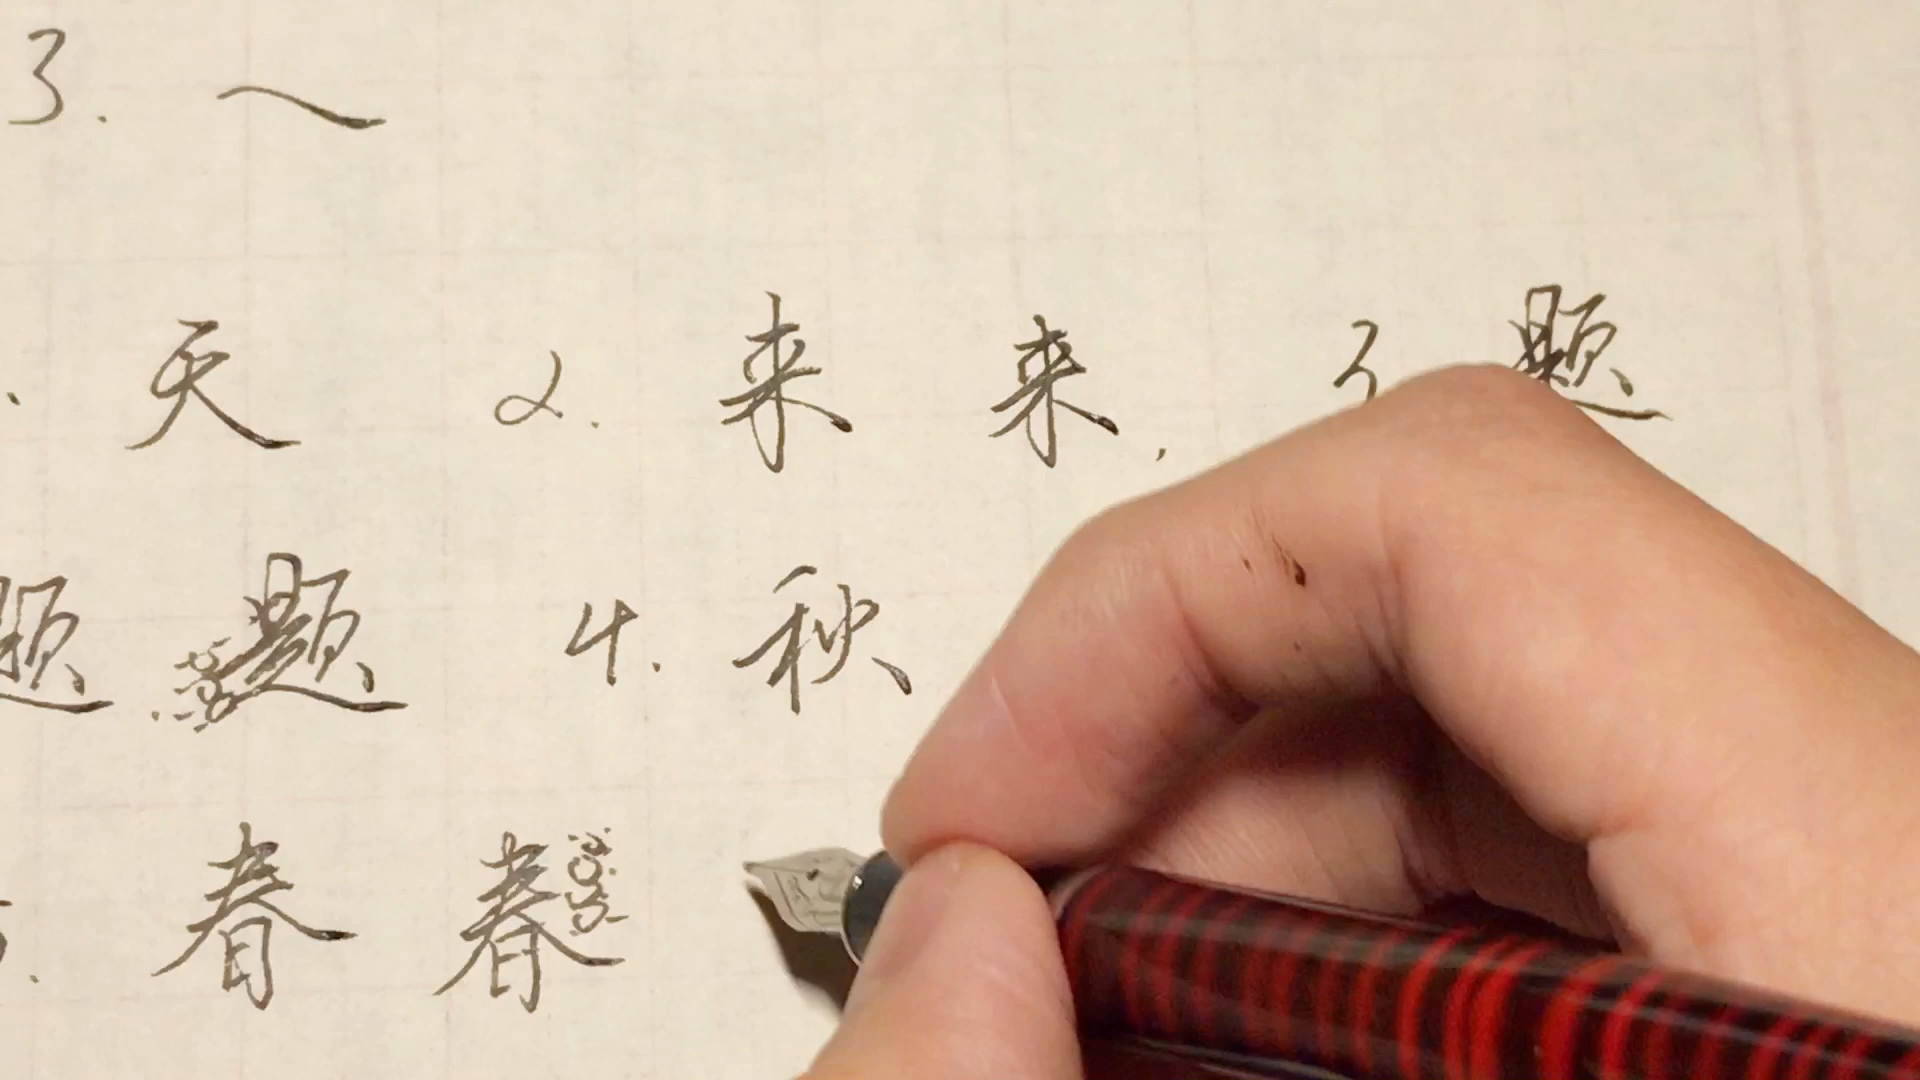 3. ㇏
. 天 2. 来 来, 3 题
题 题 4. 秋
. 春 春